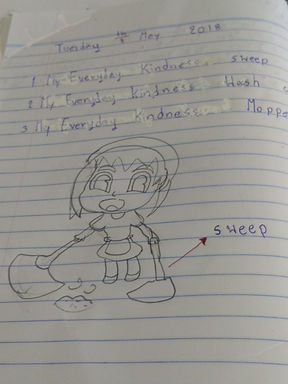 Tuesday 15/5 May 2018
1 My Everyday Kindness sweep
2 My Everyday Kindness Wash
3 My Everyday Kindness Moppe
sweep